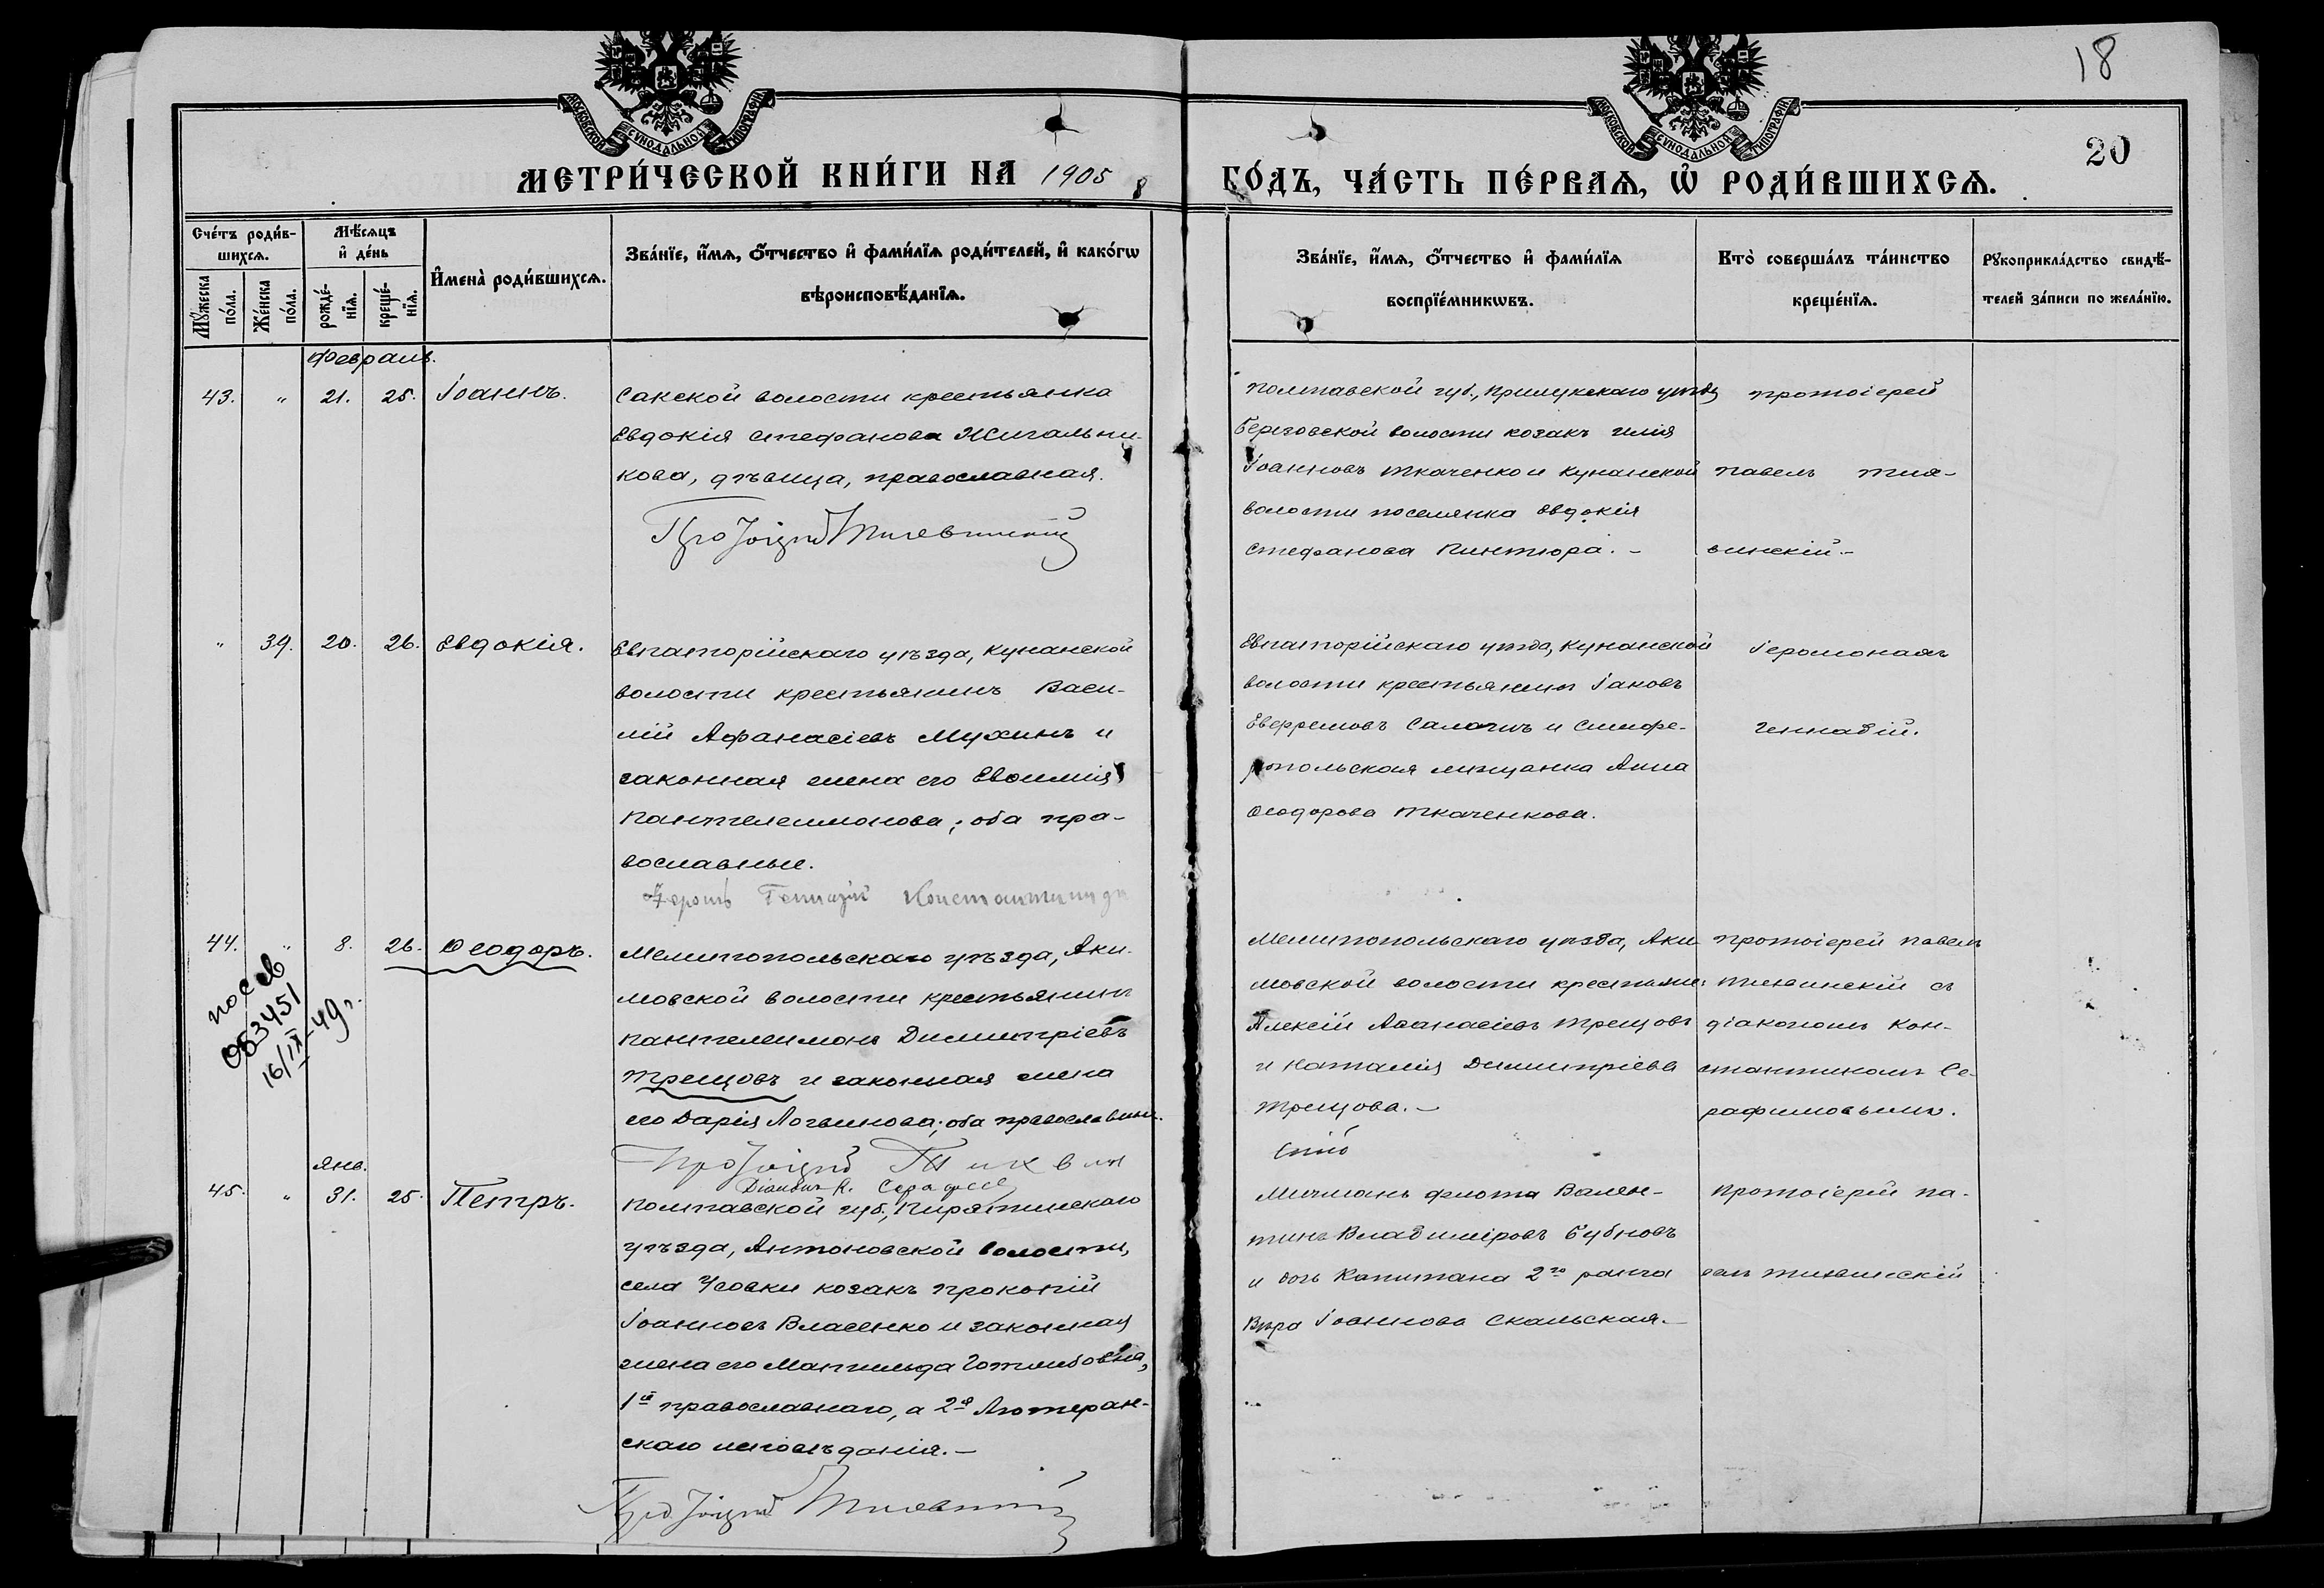 18
20
МОСКОВСКОЙ СѴНОДАЛЬНОЙ ТИПОГРАФІИ
МОСКОВСКОЙ СѴНОДАЛЬНОЙ ТИПОГРАФІИ
МЕТРИ́ЧЕСКОЙ КНИ́ГИ НА 1905
ГО́ДЪ, ЧА́СТЬ ПЕ́РВАѦ, Ѡ҆ РОДИ́ВШИХСѦ.
Сче́тъ роди́в-
шихсѧ.
Мꙋ́жеска по́ла.
Же́нска по́ла.
Мѣ́сѧцъ
и҆ де́нь
рожде́-
нїѧ.
креще́-
нїѧ.
И҆мена̀ роди́вшихсѧ.
Зва́нїе, и҆́мѧ, ѻ҆́тчество и҆ фами́лїѧ роди́телей, и҆ како́гѡ
вѣроисповѣ́данїѧ.
Зва́нїе, и҆́мѧ, ѻ҆́тчество и҆ фами́лїѧ
воспрїе́мникѡвъ.
Кто̀ соверша́лъ та́инство
креще́нїѧ.
Рꙋкоприкла́дство свидѣ́-
телей за́писи по жела́нїю.
Февраль.
43. " 21. 25. Іоаннъ.
Сакской волости крестьянка
Евдокія Стефанова Жигальни-
кова, дѣвица, православная.
Протоіерей Тихвинскій
Полтавской губ., Прилукскаго уѣзда
Береговской волости козакъ Илія
Іоанновъ Ткаченко и Кунанской
волости поселянка Евдокія
Стефанова Пинтюра. -
Протоіерей
Павелъ Тих-
винскій.-
" 39. 20. 26. Евдокія.
Евпаторійскаго уѣзда, Кунанской
волости крестьянинъ Васи-
лій Афанасіевъ Мухинъ и
законная жена его Евѳимія
Пантелеимонова; оба пра-
вославные.
Іером. Геннадій Константиниди
Евпаторійскаго уѣзда, Кунанской
волости крестьянин Іаковъ
Евфремовъ Саломч и Симфе-
ропольская мѣщанка Анна
Ѳеодорова Ткаченкова.
Іеромонахъ
Геннадій.
44. " 8. 26. Ѳеодоръ.
посв
083451
16/IX-49г.
Мелитопольскаго уѣзда, Аки-
мовской волости крестьянинъ
Пантелеимонъ Димитріевъ
Трещовъ и законная жена
его Дарія Логвинова; оба православные.
Протоіерей Тихвин
Діаконъ К. Сераф
Мелитопольскаго уѣзда, Аки-
мовской волости крестьяне:
Алексій Аѳанасіевъ Трещовъ
и Наталія Димитріева
Трещова.-
Протоіерей Павелъ
Тихвинскій съ
діакономъ Кон-
стантиномъ Се-
рафимовымъ.
янв.
45. " 31. 25. Петръ.
Полтавской губ., Пирятинскаго
уѣзда, Антоновской волости,
села Усовки козакъ Прокопій
Іоанновъ Власенко и законная
жена его Матильда Готлибовна,
1й православнаго, а 2я Лютеран-
скаго исповѣданія.-
Протоіерей Тихвинскій
Мичманъ флота Вален-
тинъ Владиміровъ Бубновъ
и дочь Капитана 2го ранга
Вѣра Іоаннова Скальская.-
Протоіерей Па-
велъ Тихвинскій